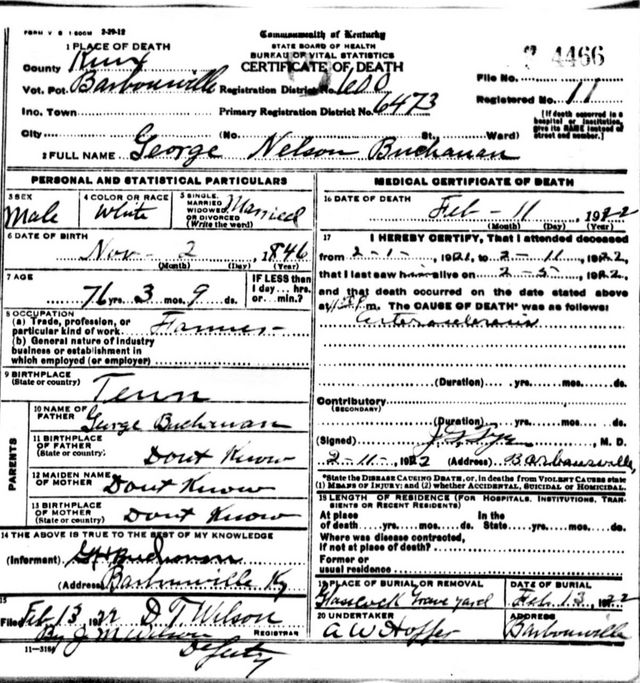 FORM V S 1 500M 2-29-12
Commonwealth of Kentucky
STATE BOARD OF HEALTH
BUREAU OF VITAL STATISTICS
CERTIFICATE OF DEATH
1 PLACE OF DEATH
County Knox
Vot. Pct. Barbourville Registration District No. 600
Inc. Town Primary Registration District No. 6473
City (No. St. Ward)
File No. 4466
Registered No. 11
[If death occurred in a hospital or institution, give its NAME instead of street and number.]
2 FULL NAME George Nelson Buchanan
PERSONAL AND STATISTICAL PARTICULARS
3 SEX
Male
4 COLOR OR RACE
White
5 SINGLE, MARRIED WIDOWED OR DIVORCED (Write the word)
Married
6 DATE OF BIRTH
Nov - 2 1846
(Month) (Day) (Year)
7 AGE
76 yrs. 3 mos. 9 ds.
IF LESS than 1 day ... hrs. or ... min.?
8 OCCUPATION
(a) Trade, profession, or particular kind of work Farmer
(b) General nature of industry business or establishment in which employed (or employer)
9 BIRTHPLACE (State or country)
Tenn
PARENTS
10 NAME OF FATHER George Buchanan
11 BIRTHPLACE OF FATHER (State or country) Dont Know
12 MAIDEN NAME OF MOTHER Dont Know
13 BIRTHPLACE OF MOTHER (State or country) Dont Know
14 THE ABOVE IS TRUE TO THE BEST OF MY KNOWLEDGE
(Informant) Buchanan
(Address) Barbourville Ky
15
Filed Feb 13 1922 D T Wilson
REGISTRAR
By J M Wilson
Deputy
11-3184
MEDICAL CERTIFICATE OF DEATH
16 DATE OF DEATH
Feb - 11 1922
(Month) (Day) (Year)
17 I HEREBY CERTIFY, That I attended deceased
from 2-1- 1921, to 2-11-, 1922,
that I last saw him alive on 2-5-, 1922,
and that death occurred on the date stated above
at m. The CAUSE OF DEATH* was as follows:
arteriosclerosis
(Duration) yrs. mos. ds.
Contributory
(SECONDARY)
(Duration) yrs. mos. ds.
(Signed) M. D.
2-11-, 1922 (Address) Barbourville,
*State the DISEASE CAUSING DEATH, or, in deaths from VIOLENT CAUSES state
(1) MEANS OF INJURY; and (2) whether ACCIDENTAL, SUICIDAL OR HOMICIDAL.
18 LENGTH OF RESIDENCE (FOR HOSPITALS, INSTITUTIONS, TRANSIENTS OR RECENT RESIDENTS)
At place of death yrs. mos. ds. In the State yrs. mos. ds.
Where was disease contracted, if not at place of death?
Former or usual residence
19 PLACE OF BURIAL OR REMOVAL
Graveyard
DATE OF BURIAL
Feb. 13, 1922
20 UNDERTAKER
A W Hopper
ADDRESS
Barbourville